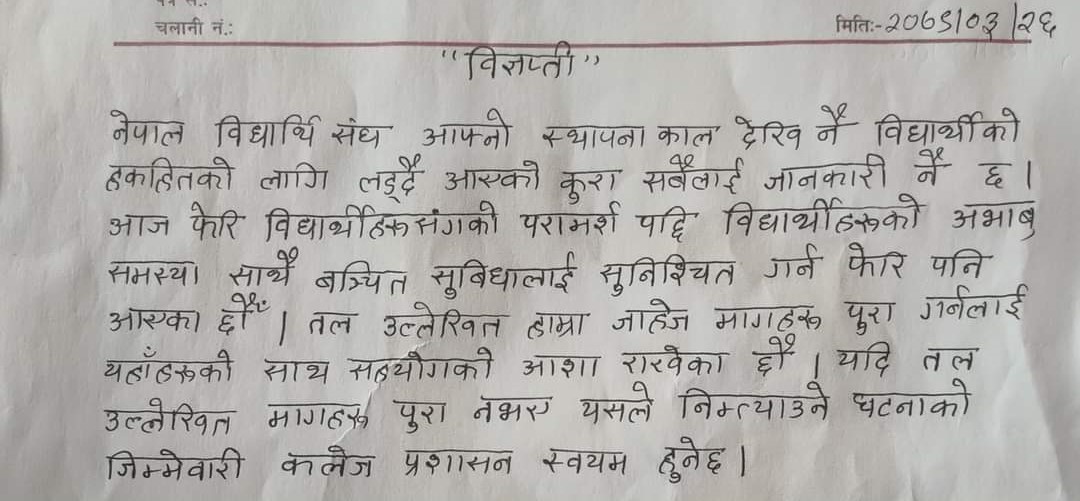 चलानी नं.:
मितिः-2069/03/२६
"विज्ञप्ती"
नेपाल विद्यार्थि संघ आफ्नो स्थापना काल देखि नै विद्यार्थीको
हकहितको लागि लड्दै आएको कुरा सबैलाई जानकारी नै छ।
आज फेरि विद्यार्थीहरुसंगको परामर्श पछि विद्यार्थीहरुको अभाब,
समस्या साथै बञ्चित सुबिधालाई सुनिश्चित गर्न फेरि पनि
आएका छौं। तल उल्लेखित हाम्रा जाहेज मागहरु पुरा गर्नलाई
यहाँहरुको साथ सहयोगको आशा राखेका छौं। यदि तल
उल्लेखित मागहरु पुरा नभए यसले निम्त्याउने घटनाको
जिम्मेवारी कलेज प्रशासन स्वयम हुनेछ।